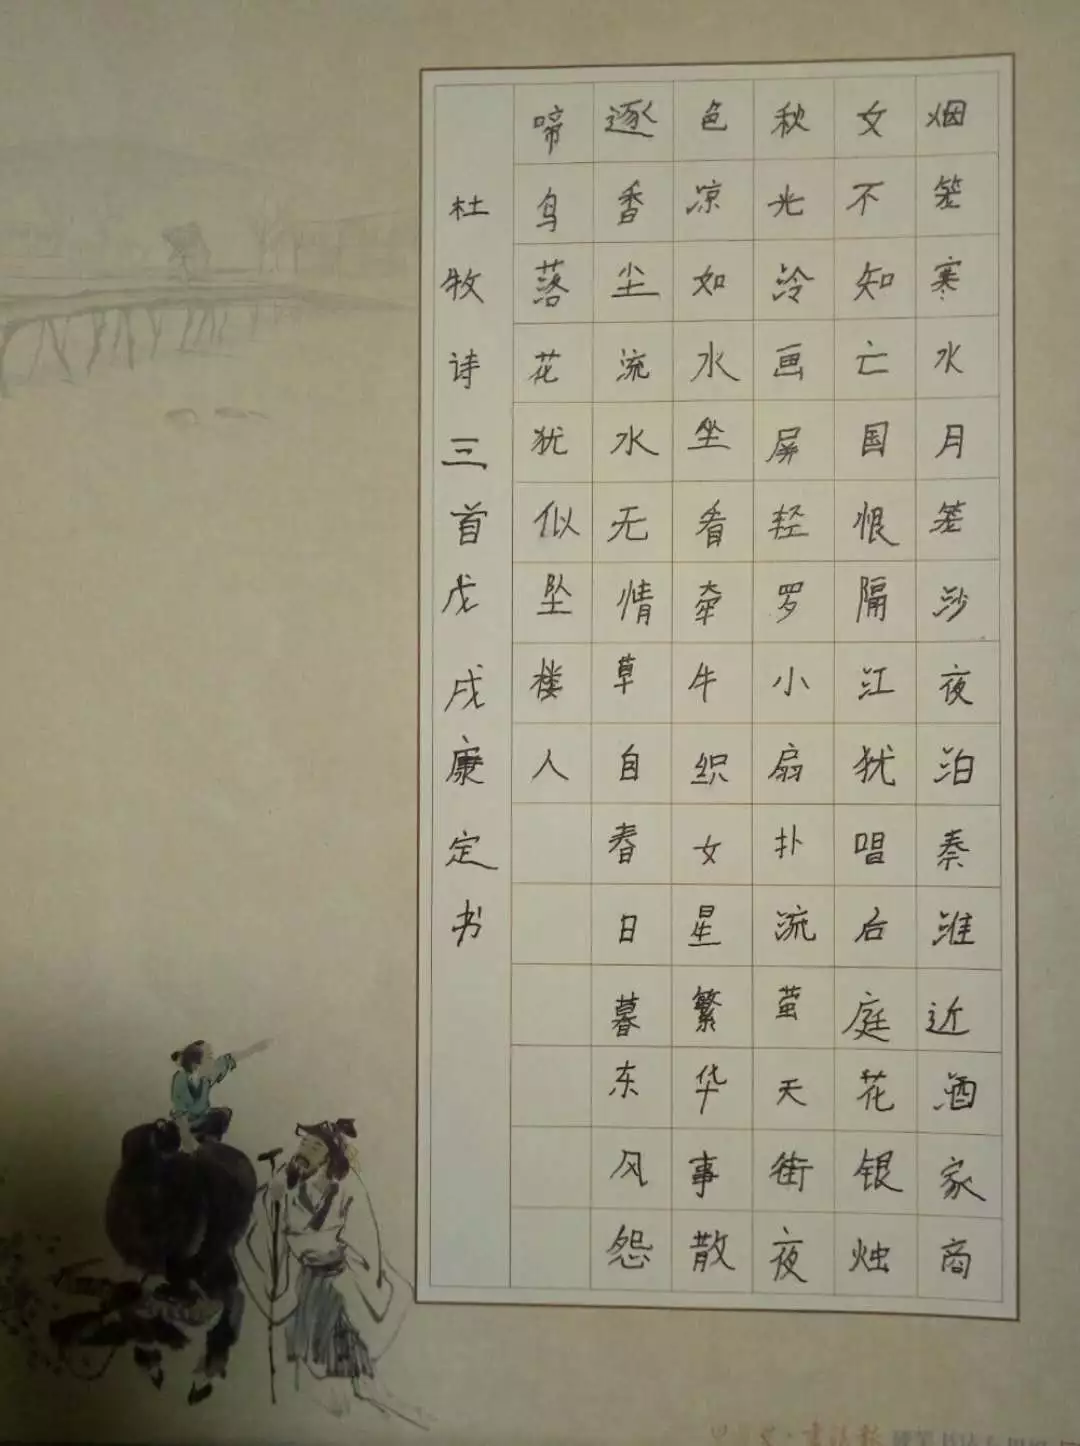 烟笼寒水月笼沙夜泊秦淮近酒家商
女不知亡国恨隔江犹唱后庭花银烛
秋光冷画屏轻罗小扇扑流萤天街夜
色凉如水坐看牵牛织女星繁华事散
逐香尘流水无情草自春日暮东风怨
啼鸟落花犹似坠楼人
杜牧诗三首戊戌康定书